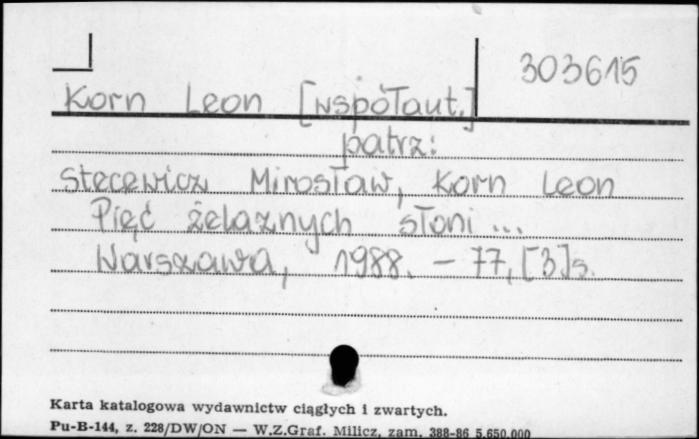 303615
Korn Leon [współaut.]
patrz:
Stecewicz Mirosław, Korn Leon
Pięć żelaznych słoni ...
Warszawa, 1988. - 77, [3] s.
Karta katalogowa wydawnictw ciągłych i zwartych.
Pu-B-144, z. 228/DW/ON — W.Z.Graf. Milicz, zam. 388-86 5.650.000